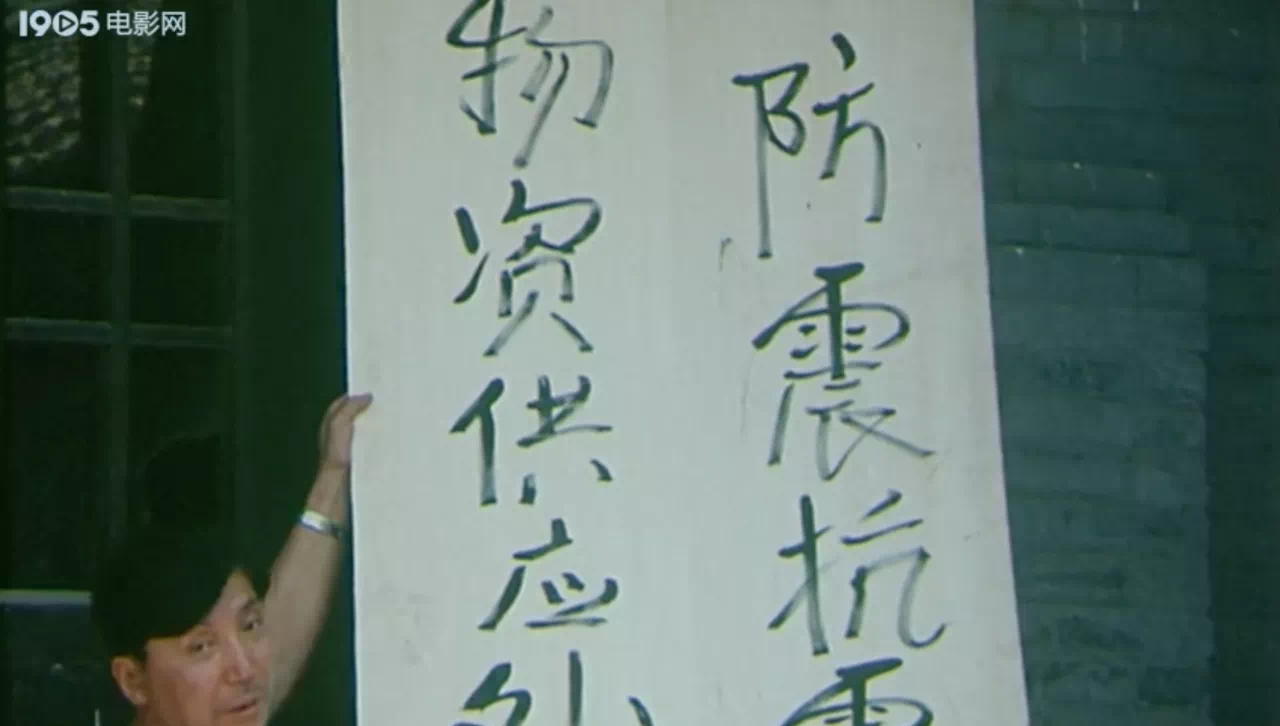 1905电影网
防震抗震
物资供应处